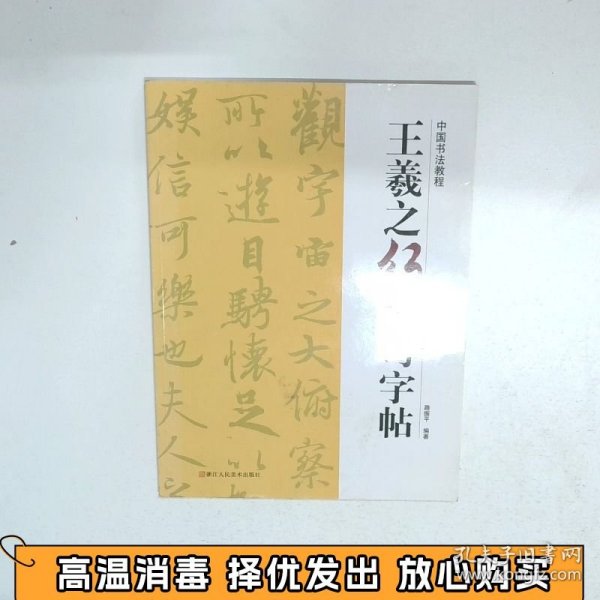 中国书法教程
王羲之行
字帖
路振平 编著
觀宇宙之大俯察
所以遊目騁懷足以
娱信可樂也夫人之
浙江人民美术出版社
高温消毒 择优发出 放心购买
孔夫子旧书网
www.kongfz.com